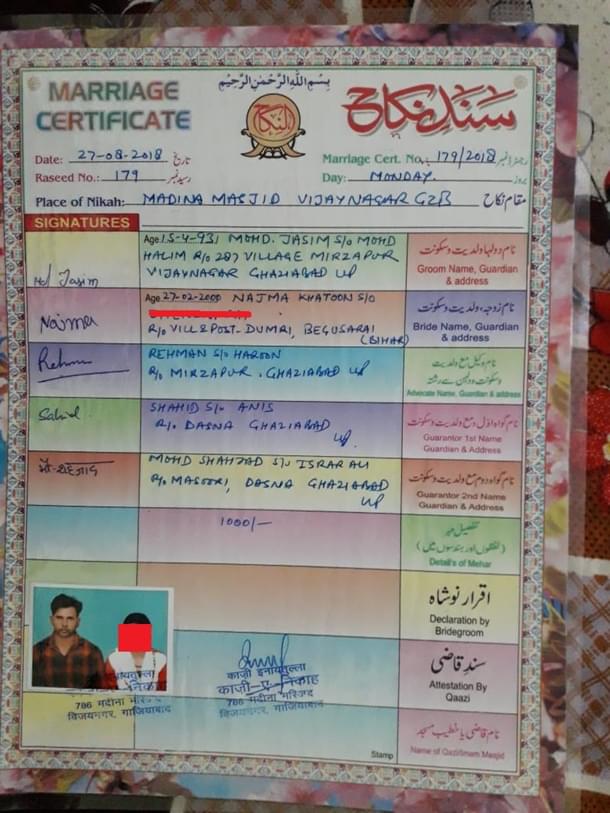 بِسْمِ اللّٰهِ الرَّحْمٰنِ الرَّحِيْمِ
MARRIAGE CERTIFICATE
النکاح
سَنَدِ نکاح
Date: 27-08-2018 تاریخ
Marriage Cert. No.: 179/2018 رجسٹرڈ نمبر
Raseed No.: 179 رسید نمبر
Day: MONDAY. بروز
Place of Nikah: MADINA MASJID VIJAYNAGAR GZB مقام نکاح
SIGNATURES
Age 15-4-931 MOHD. JASIM S/o MOHD
HALIM R/o 287 VILLAGE MIRZAPUR
VIJAYNAGAR GHAZIABAD UP
Md Jasim
نام دولہا ولدیت و سکونت
Groom Name, Guardian
& address
Age 27-02-2000 NAJMA KHATOON S/o
R/o VILL & POST-DUMRI, BEGUSARAI
(BIHAR)
Najma
نام زوجہ، ولدیت و سکونت
Bride Name, Guardian
& address
REHMAN S/o HAROON
R/o MIRZAPUR. GHAZIABAD UP
Rehman
نام وکیل مع ولدیت
سکونت و دلہن سے رشتہ
Advocate Name, Guardian & address
SHAHID S/o ANIS
R/o DASNA GHAZIABAD
UP.
Sahid
نام گواہ اوّل مع ولدیت و سکونت
Guarantor 1st Name
Guardian & Address
MOHD SHAHZAD S/o ISRAR ALI
R/o MASOORI, DASNA GHAZIABAD
UP
मौ- शहजाद
نام گواہ دوم مع ولدیت و سکونت
Guarantor 2nd Name
Guardian & Address
1000/-
تفصیل مہر
(لفظوں اور ہندسوں میں)
Detail's of Mehar
اقرار نوشاہ
Declaration by
Bridegroom
سندِ قاضی
Attestation By
Qaazi
काज़ी इनायतुल्ला
काज़ी-ए-निकाह
786 मदीना मस्जिद
विजयनगर, गाजियाबाद
786 मदीना मस्जिद
विजयनगर, गाजियाबाद
Stamp
نام قاضی یا خطیب مسجد
Name of Qazi/Imam Masjid